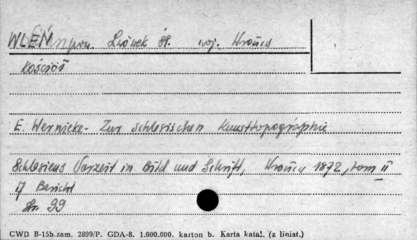 WLEŃ pow. Lwówek Śl. woj. Wrocław
Kościół
E. Wernicke - Zur schlesischen Kunsttopographie
Schlesiens Vorzeit in Bild und Schrift, 1872, tom II
17 Bericht
Str. 99
CWD B-15b.zam. 2899/P. GDA-8. 1.000.000. karton b. Karta katal. (z liniat.)